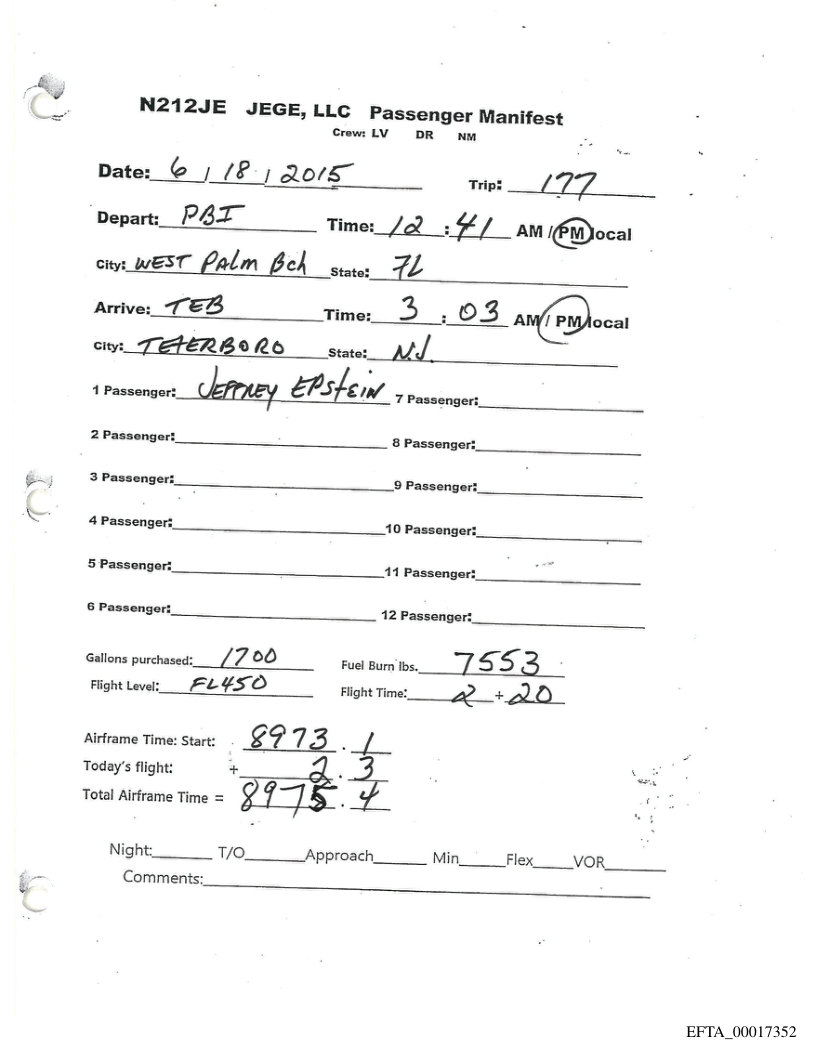 N212JE JEGE, LLC Passenger Manifest
Crew: LV DR NM
Date: 6 / 18 / 2015 Trip: 177
Depart: PBI Time: 12 : 41 AM / PM local
City: WEST PAlm Bch State: FL
Arrive: TEB Time: 3 : 03 AM / PM local
City: TETERBORO State: N.J.
1 Passenger: JEFFREY EPSTEIN 7 Passenger:
2 Passenger: 8 Passenger:
3 Passenger: 9 Passenger:
4 Passenger: 10 Passenger:
5 Passenger: 11 Passenger:
6 Passenger: 12 Passenger:
Gallons purchased: 1700 Fuel Burn lbs. 7553
Flight Level: FL450 Flight Time: 2 + 20
Airframe Time: Start: 8973 . 1
Today's flight: + 2 . 3
Total Airframe Time = 8975 . 4
Night: T/O Approach Min Flex VOR
Comments:
EFTA_00017352